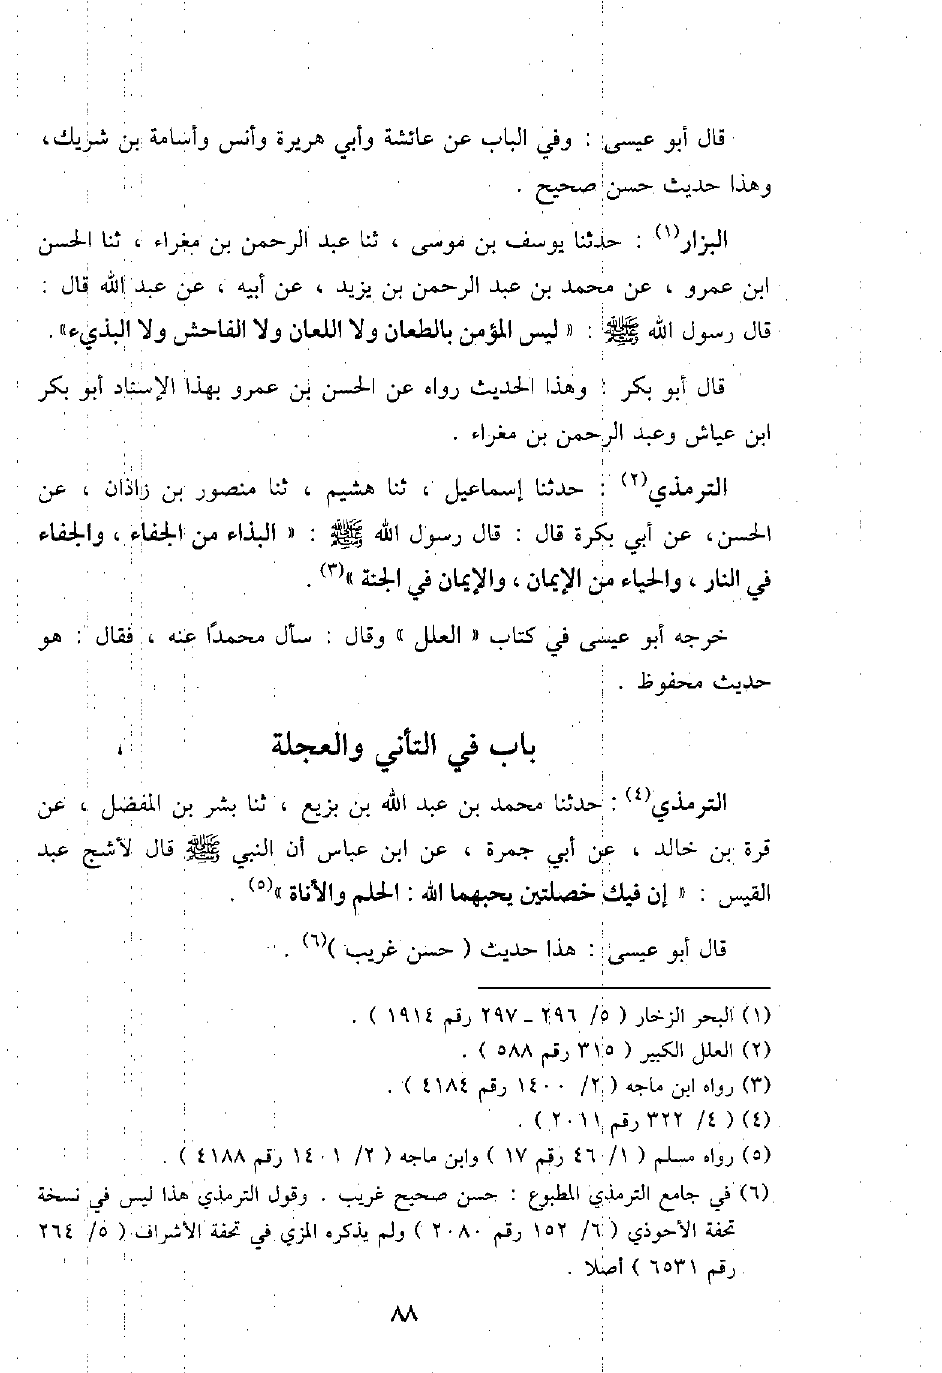 قال أبو عيسى : وفي الباب عن عائشة وأبي هريرة وأنس وأسامة بن شريك،
وهذا حديث حسن صحيح .
البزار(١) : حدثنا يوسف بن موسى ، ثنا عبد الرحمن بن مغراء ، ثنا الحسن
ابن عمرو ، عن محمد بن عبد الرحمن بن يزيد ، عن أبيه ، عن عبد الله قال :
قال رسول الله ﷺ : « ليس المؤمن بالطعان ولا اللعان ولا الفاحش ولا البذيء».
قال أبو بكر : وهذا الحديث رواه عن الحسن بن عمرو بهذا الإسناد أبو بكر
ابن عياش وعبد الرحمن بن مغراء .
الترمذي(٢) : حدثنا إسماعيل ، ثنا هشيم ، ثنا منصور بن زاذان ، عن
الحسن، عن أبي بكرة قال : قال رسول الله ﷺ : « البذاء من الجفاء ، والجفاء
في النار ، والحياء من الإيمان ، والإيمان في الجنة »(٣) .
خرجه أبو عيسى في كتاب « العلل » وقال : سأل محمدًا عنه ، فقال : هو
حديث محفوظ .
باب في التأني والعجلة
الترمذي(٤) : حدثنا محمد بن عبد الله بن بزيع ، ثنا بشر بن المفضل ، عن
قرة بن خالد ، عن أبي جمرة ، عن ابن عباس أن النبي ﷺ قال لأشج عبد
القيس : « إن فيك خصلتين يحبهما الله : الحلم والأناة »(٥) .
قال أبو عيسى : هذا حديث ( حسن غريب )(٦) .
(١) البحر الزخار ( ٥/ ٢٩٦ ـ ٢٩٧ رقم ١٩١٤ ) .
(٢) العلل الكبير ( ٣١٥ رقم ٥٨٨ ) .
(٣) رواه ابن ماجه ( ٢/ ١٤٠٠ رقم ٤١٨٤ ) .
(٤) ( ٤/ ٣٢٢ رقم ٢٠١١ ) .
(٥) رواه مسلم ( ١/ ٤٦ رقم ١٧ ) وابن ماجه ( ٢/ ١٤٠١ رقم ٤١٨٨ ) .
(٦) في جامع الترمذي المطبوع : حسن صحيح غريب . وقول الترمذي هذا ليس في نسخة
تحفة الأحوذي ( ٦/ ١٥٢ رقم ٢٠٨٠ ) ولم يذكره المزي في تحفة الأشراف ( ٥/ ٢٦٤
رقم ٦٥٣١ ) أصلا .
٨٨